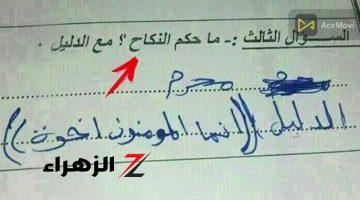 AceMovi
السؤال الثالث :- ما حكم النكاح ؟ مع الدليل .
محرم
الدليل ((انما المومنون اخوة))
الزهراء